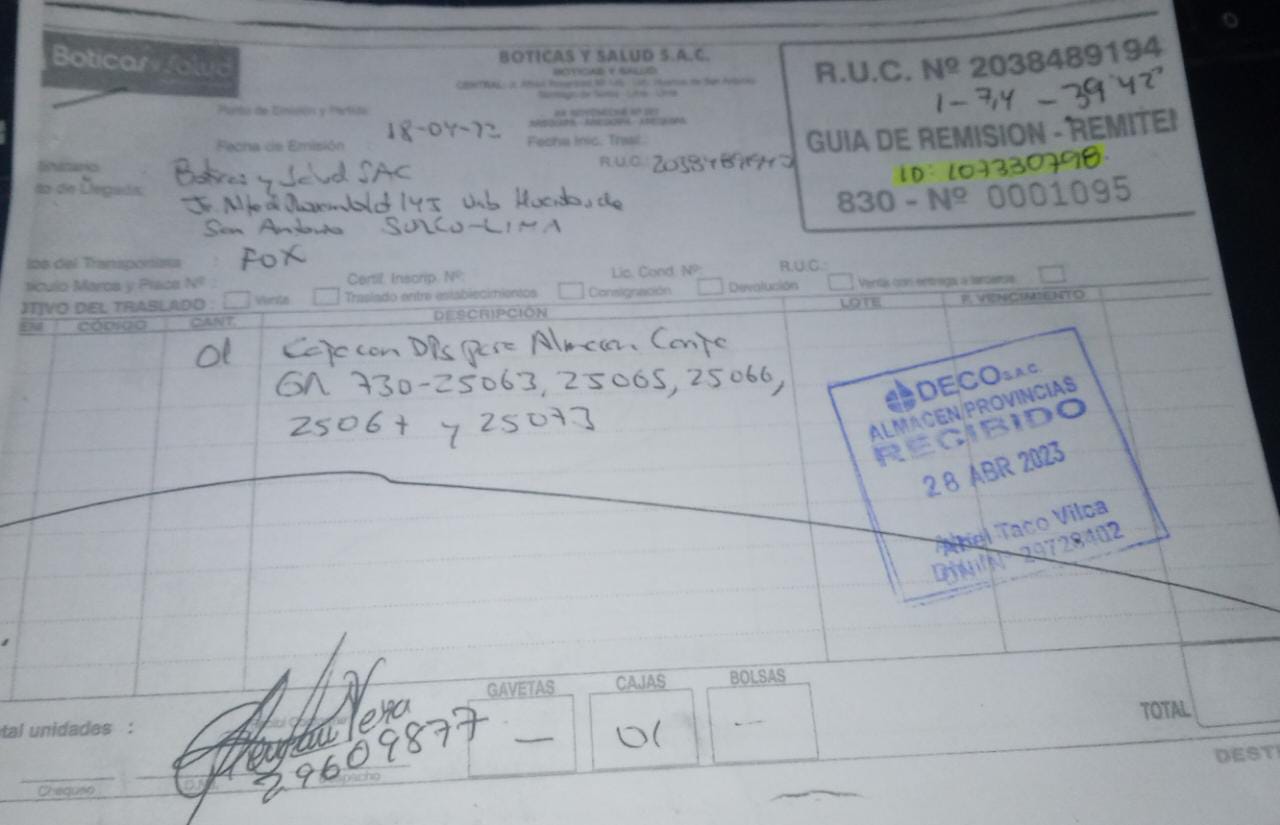 Boticas y Salud
BOTICAS Y SALUD S.A.C.
BOTICAS Y SALUD
Santiago de Surco - Lima - Lima
AREQUIPA - AREQUIPA - AREQUIPA
R.U.C. Nº 2038489194
1-7,4 - 39'42"
GUIA DE REMISION - REMITE
ID: 107330798
830 - Nº 0001095
Punto de Emisión y Partida:
Fecha de Emisión : 18-04-
Fecha Inic. Trasl.:
Boticas y Salud SAC
R.U.C.:
to de Llegada:
Urb
San Antonio SURCO-LIMA
os del Transportista : FOX
ículo Marca y Placa Nº :
Certif. Inscrip. Nº:
Lic. Cond. Nº:
R.U.C.:
TIVO DEL TRASLADO : Venta Traslado entre establecimientos Consignación Devolución Venta con entrega a terceros
EM CÓDIGO CANT. DESCRIPCIÓN LOTE F. VENCIMIENTO
01 Caja con para Almacen
GR 730-25063, 25065, 25066,
25067 y 25073
DECO S.A.C.
ALMACEN PROVINCIAS
RECIBIDO
28 ABR 2023
Taco Vilca
DNI Nº 29728402
GAVETAS CAJAS BOLSAS
tal unidades : — 01 —
TOTAL
Vera
29609877
Chequeo
Despacho
DEST